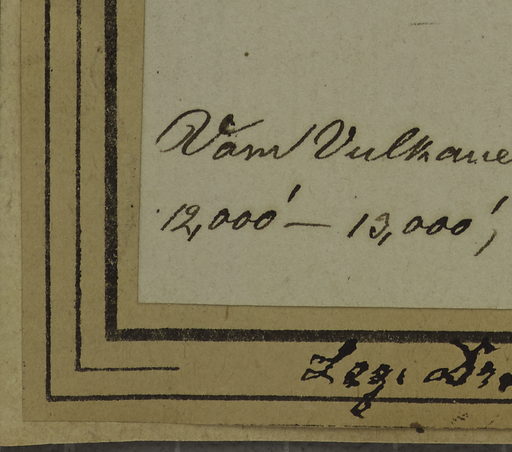 Vom Vulkane
12,000' — 13,000',
Leg.